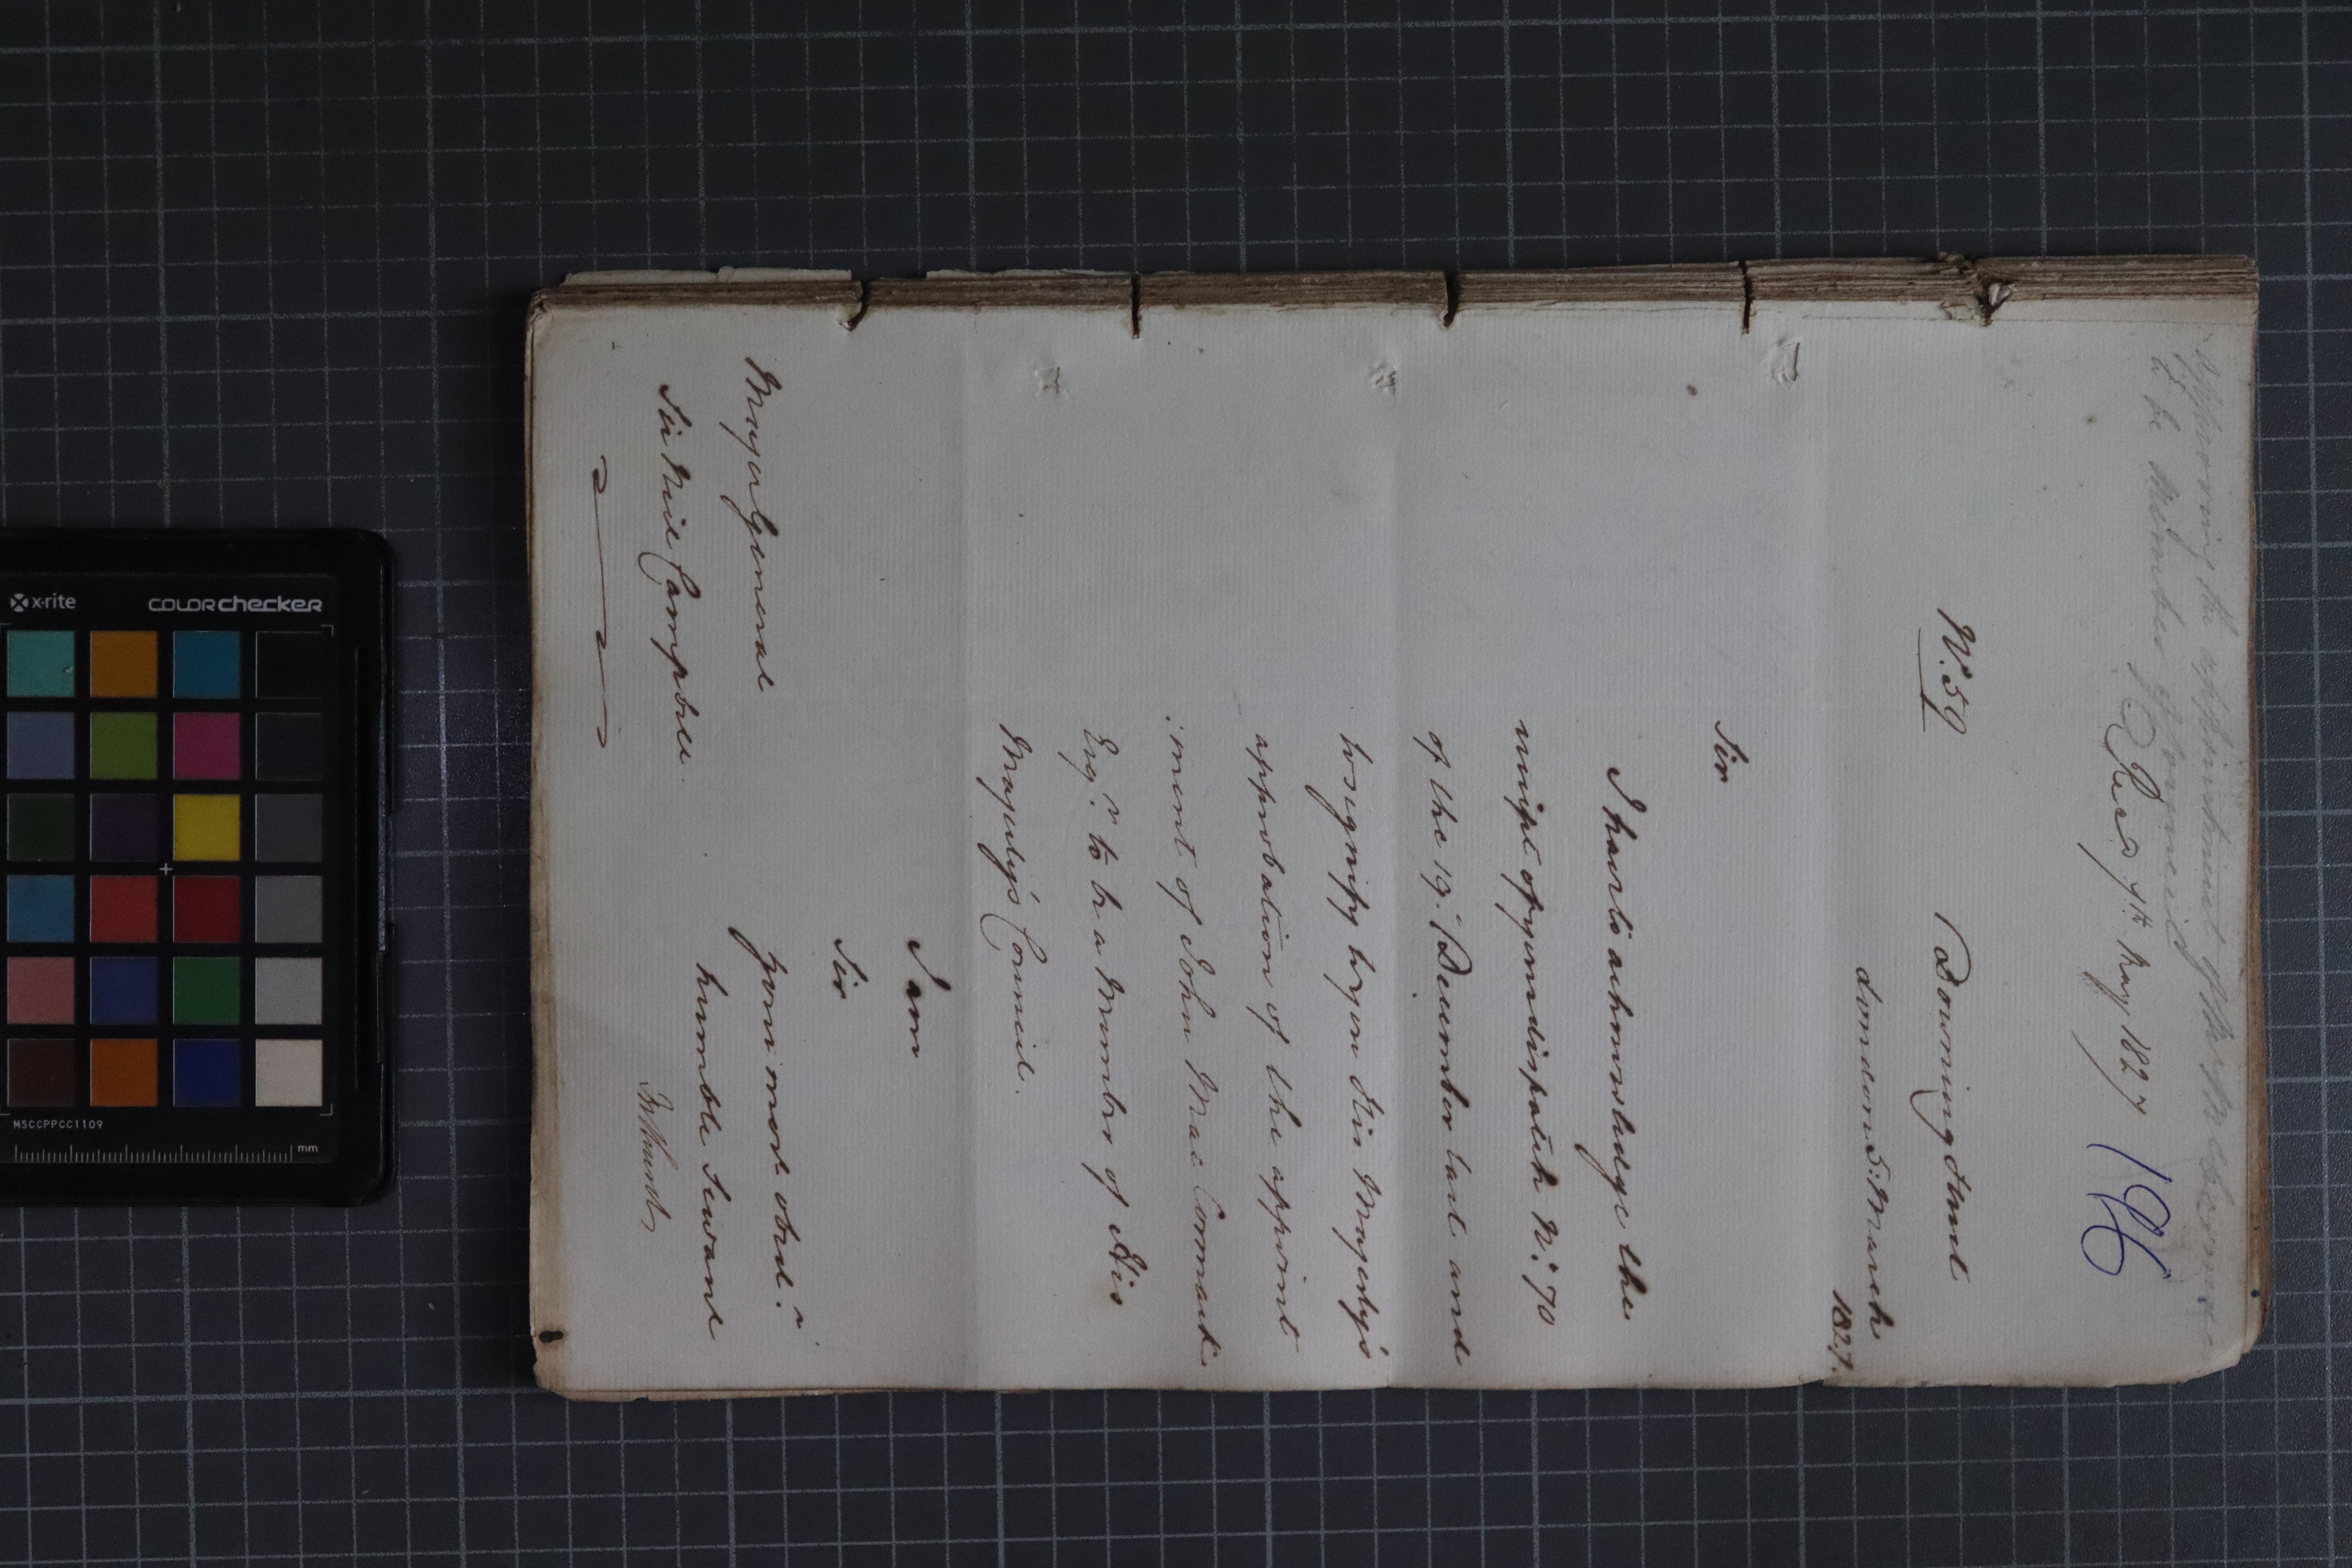 approving the appointment of Mr
to be Member of Council
Recd 7th May 1827
196
No. 59
Downing Street
London 5. March
1827.
Sir
I have to acknowledge the
receipt of your dispatch No. 70
of the 19. December last and
to signify to you His Majesty's
approbation of the appoint
:ment of John Mac Cormack
Esqre. to be a Member of His
Majesty's Council.
I am
Sir
your most obedt.
humble Servant
Bathurst
Major General
Sir Neil Campbell
x-rite
colorchecker
MSCCPPCC1109
mm